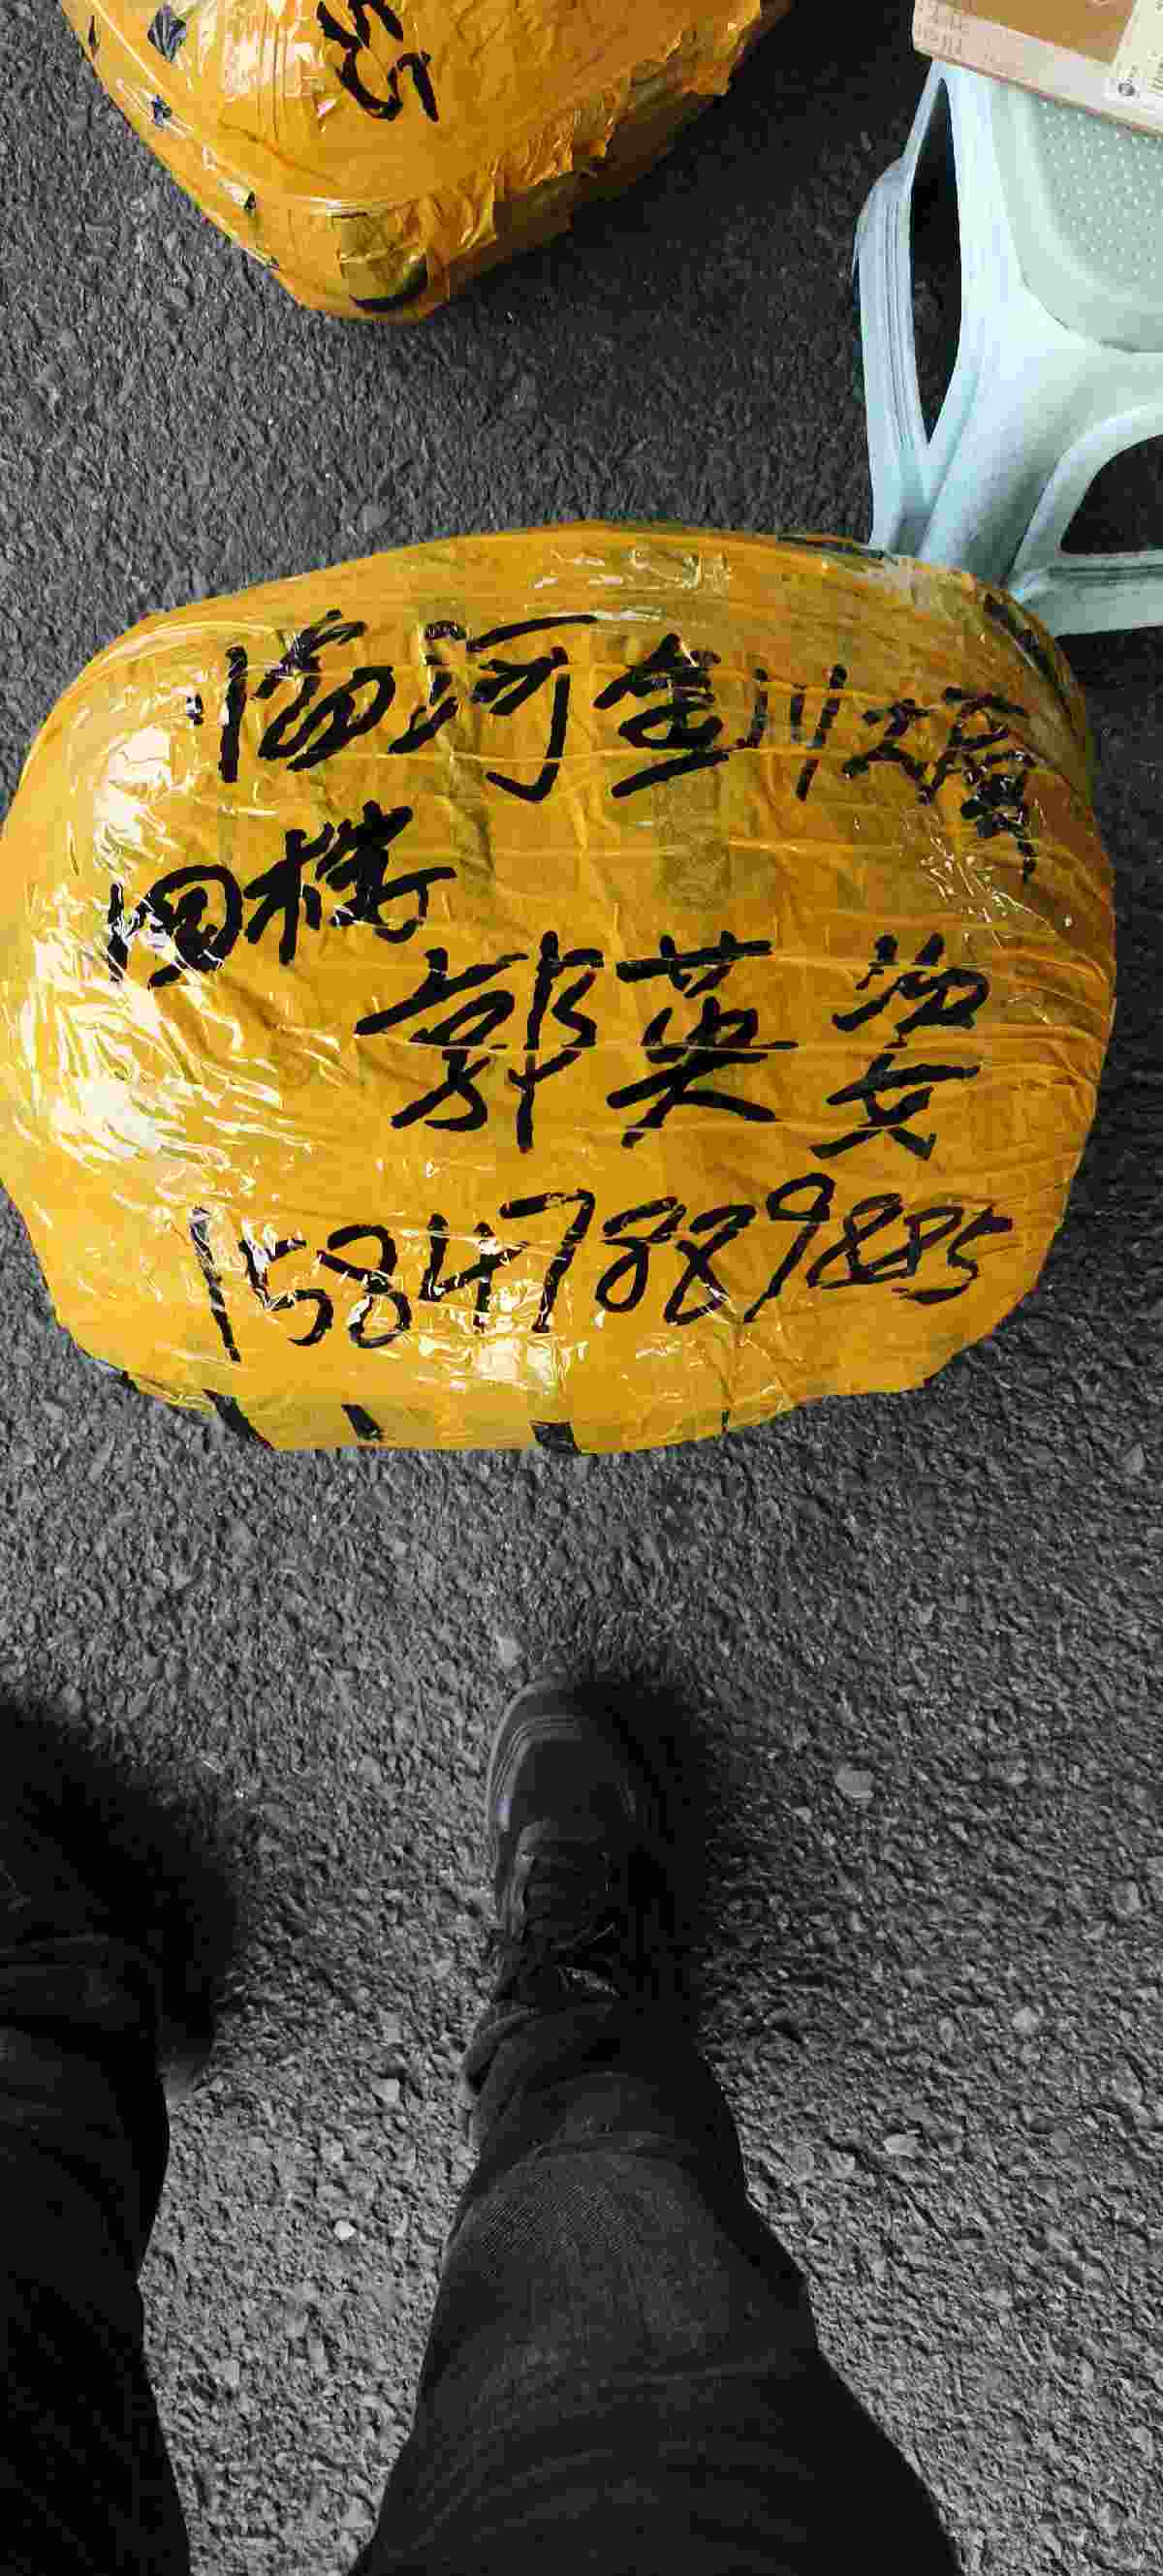 临河金川大厦
四楼
郭英姿
15847889885